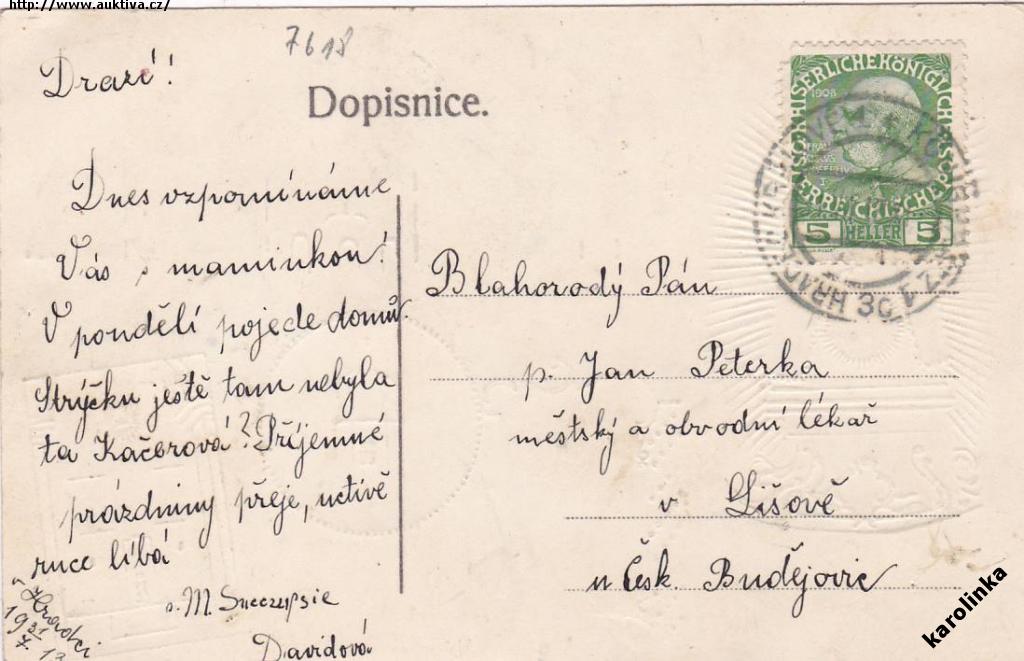 http://www.auktiva.cz/
7618
Drazí!
Dopisnice.
Dnes vzpomínáme
Vás s maminkou!
V pondělí pojede domů.
Strýčku ještě tam nebyla
ta Kačerová? Příjemné
prázdniny přeje, uctivě
ruce líbá
M.
Davidová
V Hradci
19 31/7 12
KAISERLICHE KÖNIGLICHE
ÖSTERREICHISCHE
1908
5 HELLER 5
HRADEC
Blahorodý Pán
p. Jan Peterka
městský a obvodní lékař
v Lišově
u Česk. Budějovic
karolinka